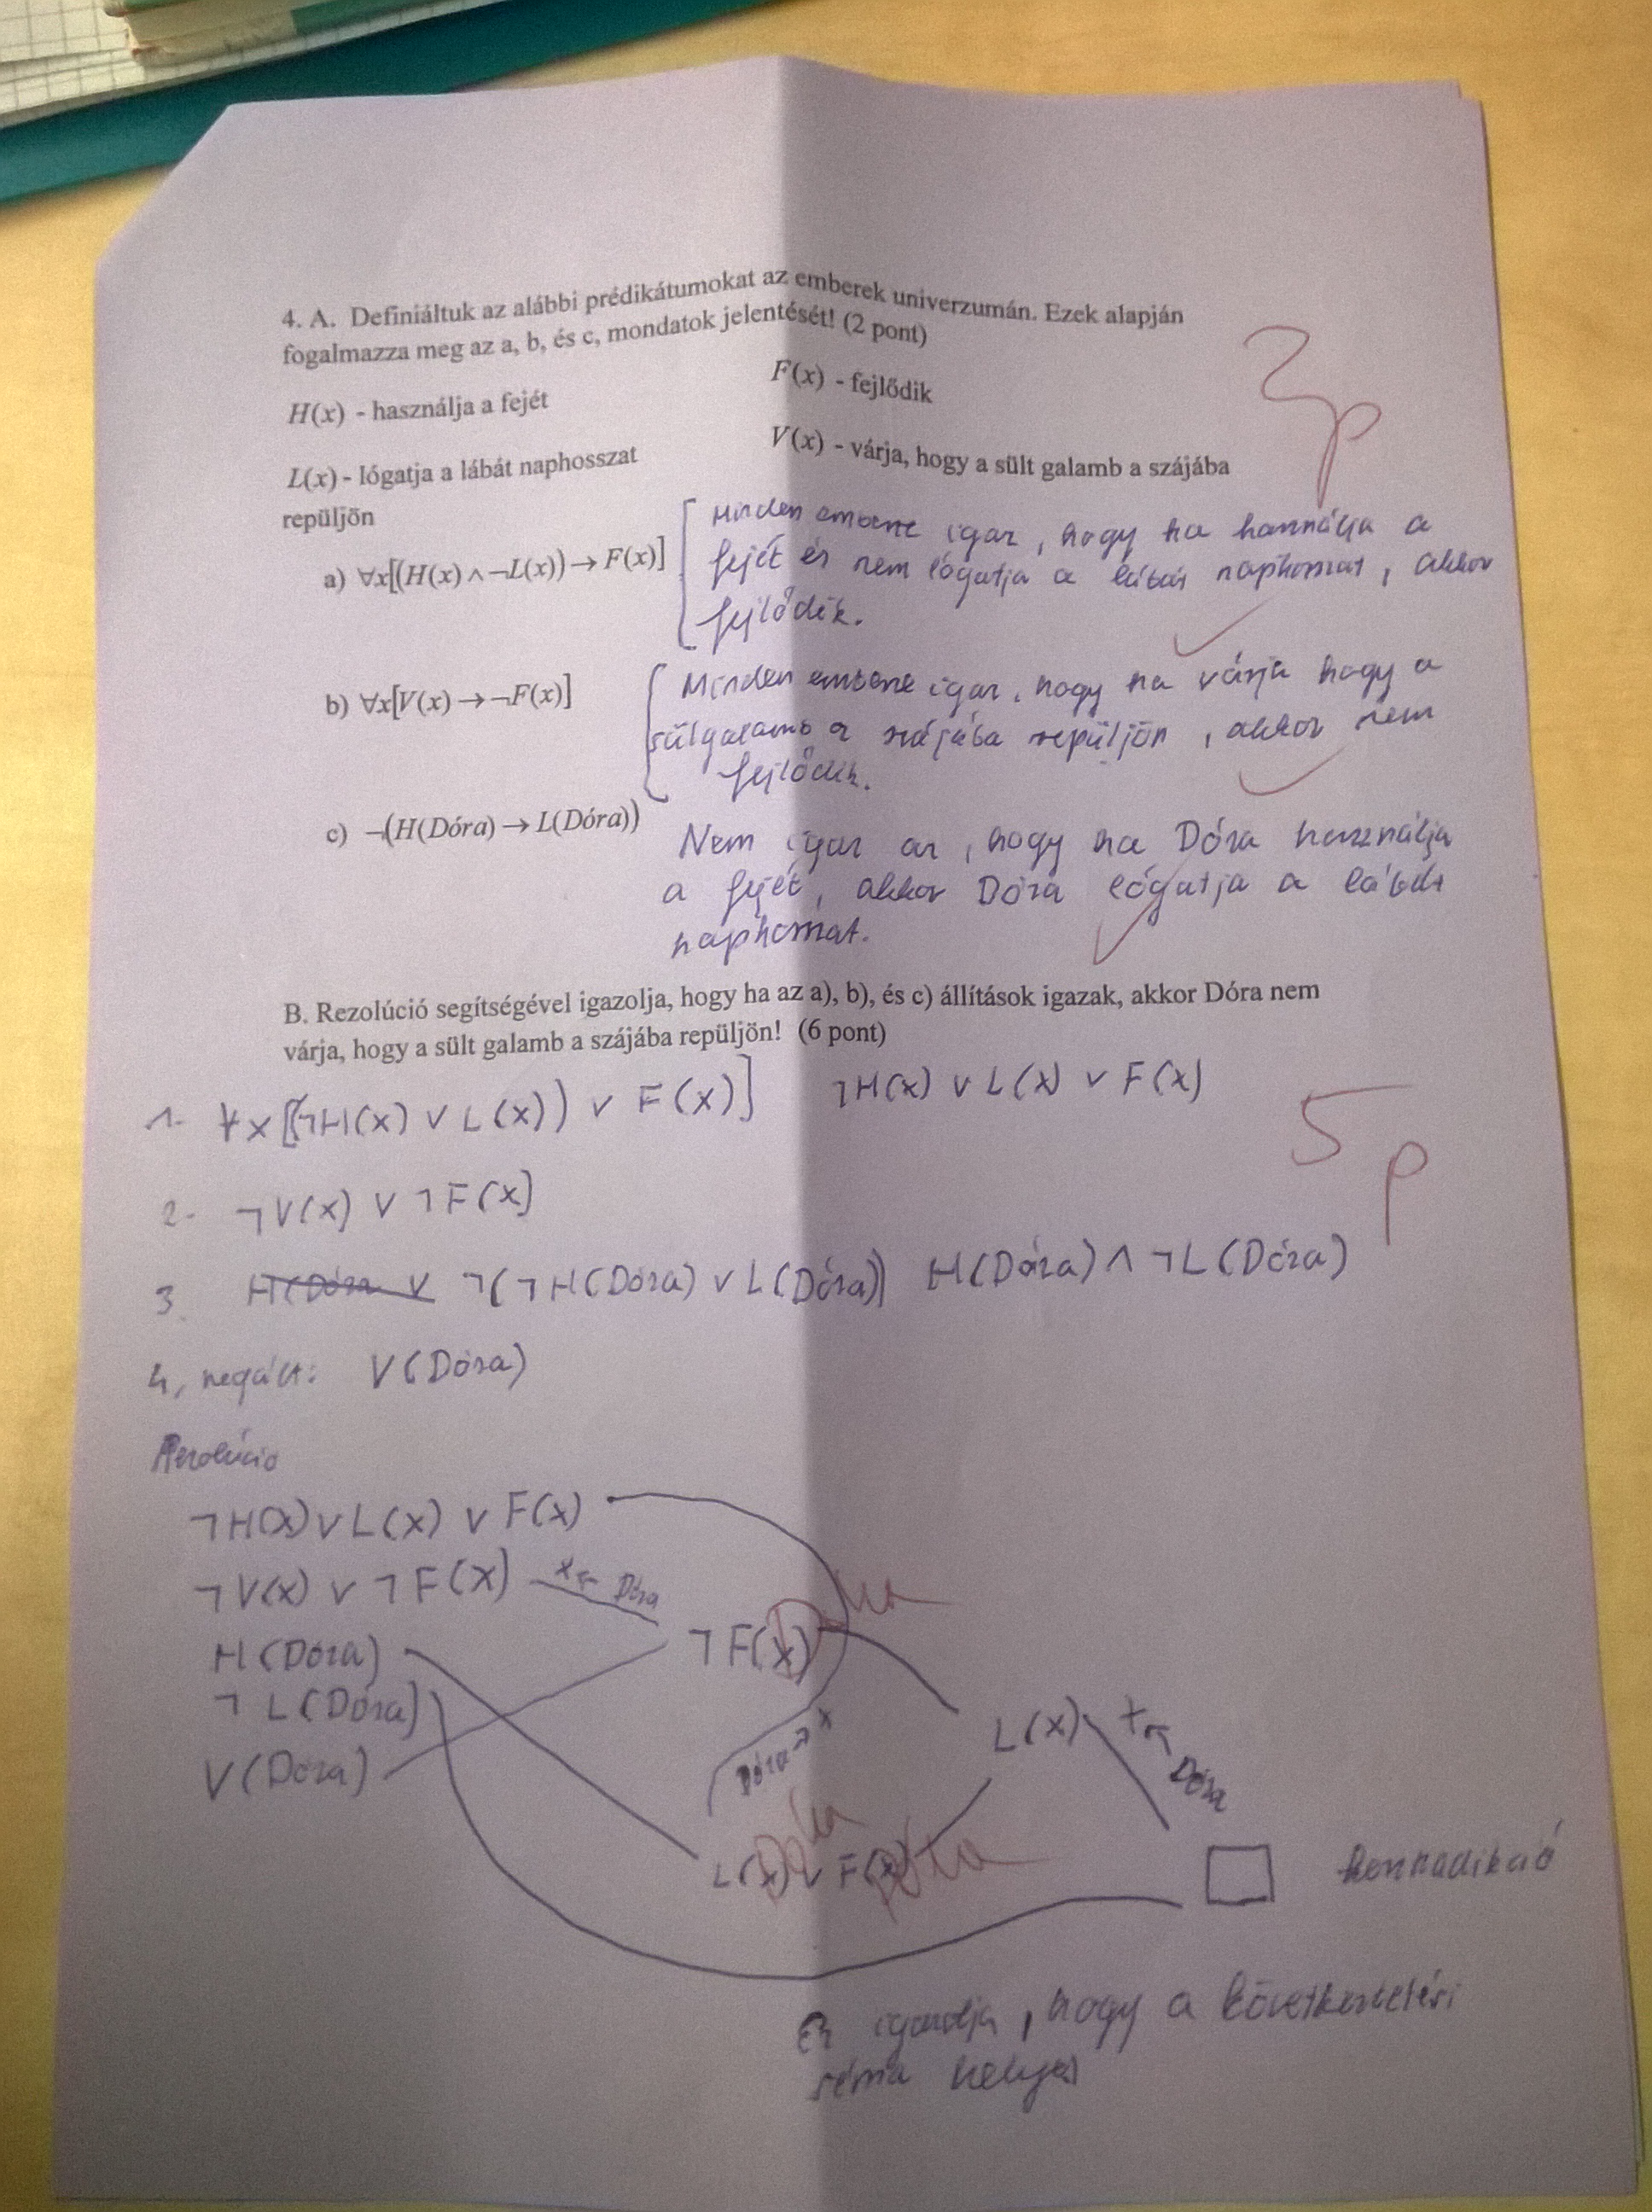 4. A. Definiáltuk az alábbi prédikátumokat az emberek univerzumán. Ezek alapján
fogalmazza meg az a, b, és c, mondatok jelentését! (2 pont)
2p
H(x) - használja a fejét
F(x) - fejlődik
L(x) - lógatja a lábát naphosszat
V(x) - várja, hogy a sült galamb a szájába
repüljön
a) ∀x[(H(x)∧¬L(x))→F(x)]
Minden emberre igaz, hogy ha használja a
fejét és nem lógatja a lábát naphosszat, akkor
fejlődik.
b) ∀x[V(x)→¬F(x)]
Minden emberre igaz, hogy ha várja hogy a
sültgalamb a szájába repüljön, akkor nem
fejlődik.
c) ¬(H(Dóra)→L(Dóra))
Nem igaz az, hogy ha Dóra használja
a fejét, akkor Dóra lógatja a lábát
naphosszat.
B. Rezolúció segítségével igazolja, hogy ha az a), b), és c) állítások igazak, akkor Dóra nem
várja, hogy a sült galamb a szájába repüljön! (6 pont)
1. ∀x[(¬H(x) ∨ L(x)) ∨ F(x)] ¬H(x) ∨ L(x) ∨ F(x)
5p
2. ¬V(x) ∨ ¬F(x)
3. H(Dóra ∨ ¬(¬H(Dóra) ∨ L(Dóra)) H(Dóra) ∧ ¬L(Dóra)
4, negált: V(Dóra)
Rezolúció
¬H(x) ∨ L(x) ∨ F(x)
¬V(x) ∨ ¬F(x) x ← Dóra
H(Dóra)
¬F(x) Dóra
¬L(Dóra)
L(x) x ← Dóra
V(Dóra)
Dóra → x
L(x) ∨ F(x) Dóra Dóra
□ kontradikció
Ez igazolja, hogy a következtetési
séma helyes